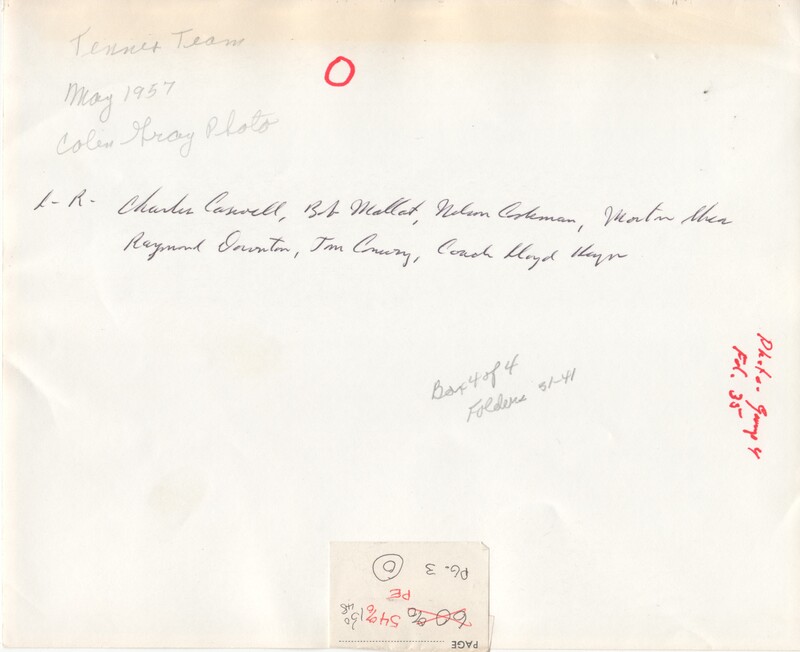 Tennis Team
May 1957
Colin Gray Photo
L - R - Charles Caswell, Bob Mallat, Nelson, Morton Shea
Raymond Downton, Tom Conway, Coach Lloyd
Box 4 of 4
Folders 31-41
Photo. Group 4
Fol. 35
PAGE
60%
54%
PE
PG. 3
O